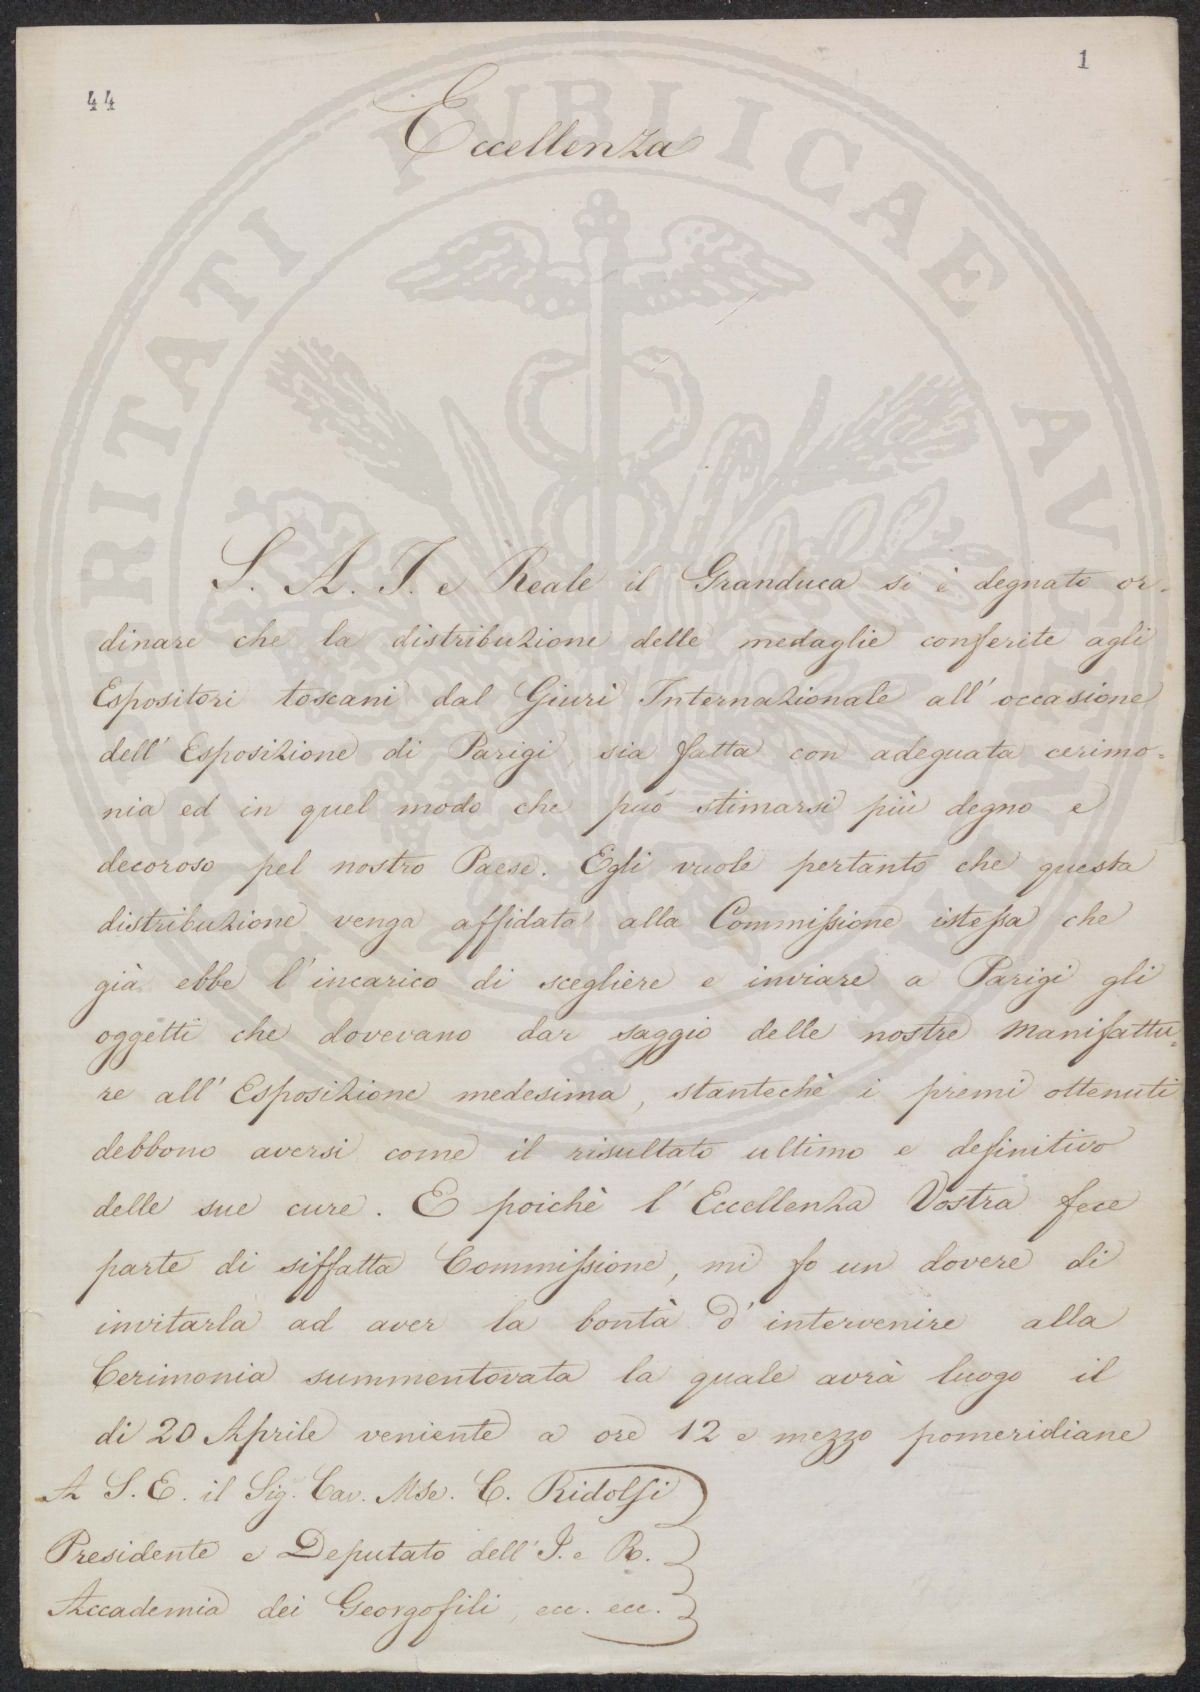 1
44
Eccellenza
S. A. I. e Reale il Granduca si è degnato or-
dinare che la distribuzione delle medaglie conferite agli
Espositori toscani dal Giurì Internazionale all' occasione
dell' Esposizione di Parigi, sia fatta con adeguata cerimo-
nia ed in quel modo che può stimarsi più degno e
decoroso pel nostro Paese. Egli vuole pertanto che questa
distribuzione venga affidata alla Commissione istessa che
già ebbe l' incarico di scegliere e inviare a Parigi gli
oggetti che dovevano dar saggio delle nostre Manifattu-
re all' Esposizione medesima, stantechè i premi ottenuti
debbono aversi come il risultato ultimo e definitivo
delle sue cure. E poichè l' Eccellenza Vostra fece
parte di siffatta Commissione, mi fo un dovere di
invitarla ad aver la bontà d' intervenire alla
Cerimonia summentovata la quale avrà luogo il
dì 20 Aprile veniente a ore 12 e mezzo pomeridiane
A S. E. il Sig. Cav. Mse. C. Ridolfi
Presidente e Deputato dell' I. e R.
Accademia dei Georgofili, ecc. ecc.
PROSPERITATI PUBLICAE AUGENDAE